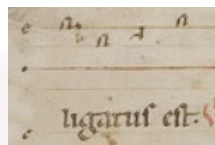 ligatus est.